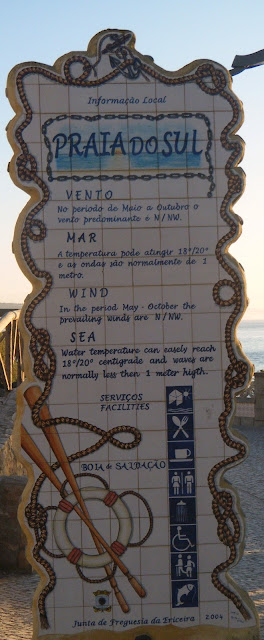 Informação Local
PRAIA DO SUL
VENTO
No período de Maio a Outubro o
vento predominante é N/NW.
MAR
A temperatura pode atingir 18º/20º
e as ondas são normalmente de 1
metro.
WIND
In the period May - October the
prevailing winds are N/NW.
SEA
Water temperature can easely reach
18º/20º centigrade and waves are
normally less then 1 meter higth.
SERVIÇOS
FACILITIES
BOIA de SALVAÇÃO
Junta de Freguesia da Ericeira 2004